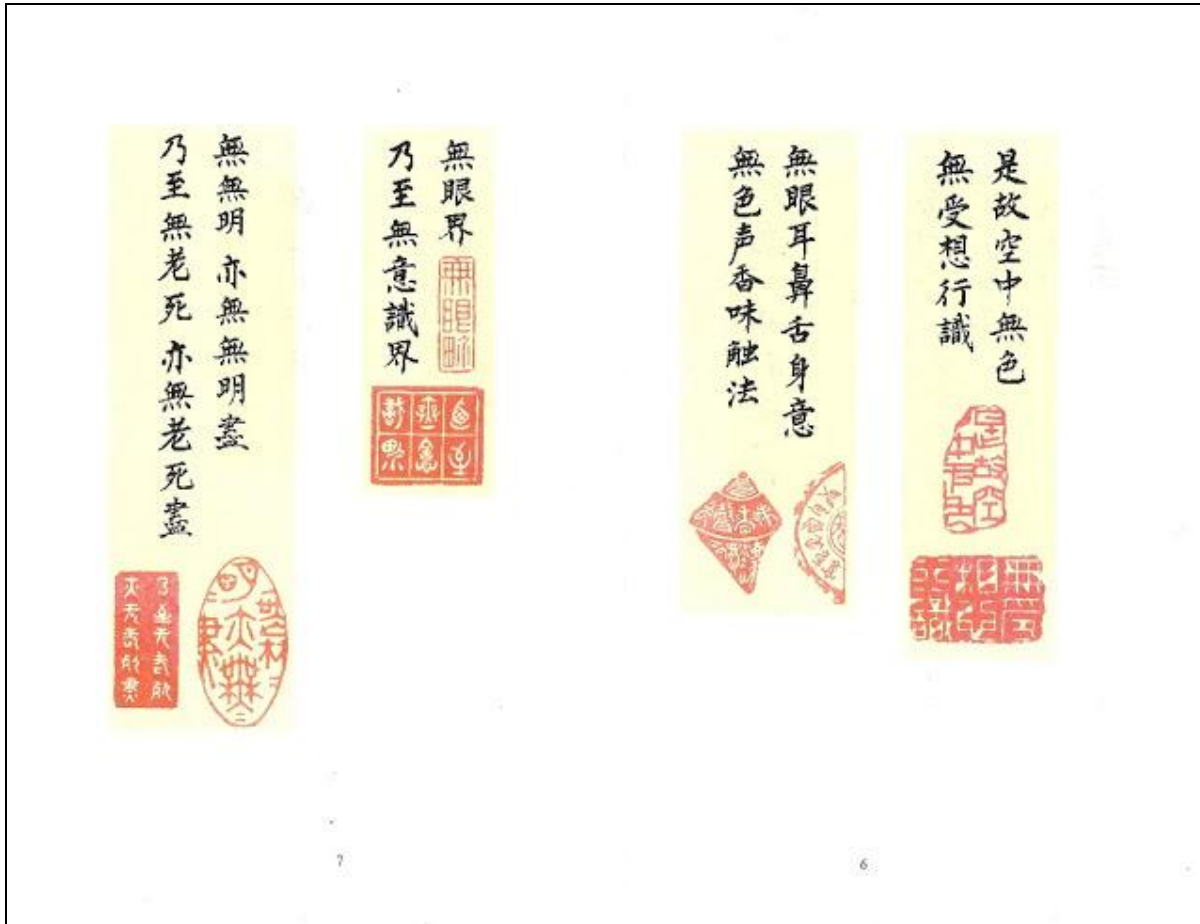 是故空中無色
無受想行識
無眼耳鼻舌身意
無色声香味触法
6
無眼界
乃至無意識界
無無明亦無無明盡
乃至無老死亦無老死盡
7